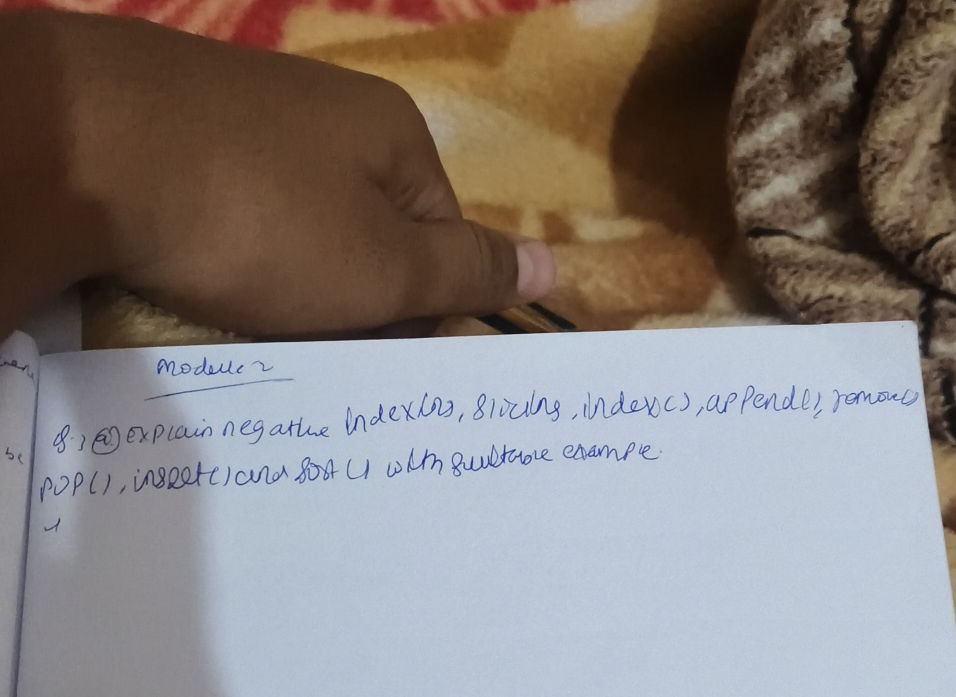 Module 2
Q.3 (a) explain negative Indexing, Slicing, index(), append(), remove()
POP(), insert() and sort() with suitable example.